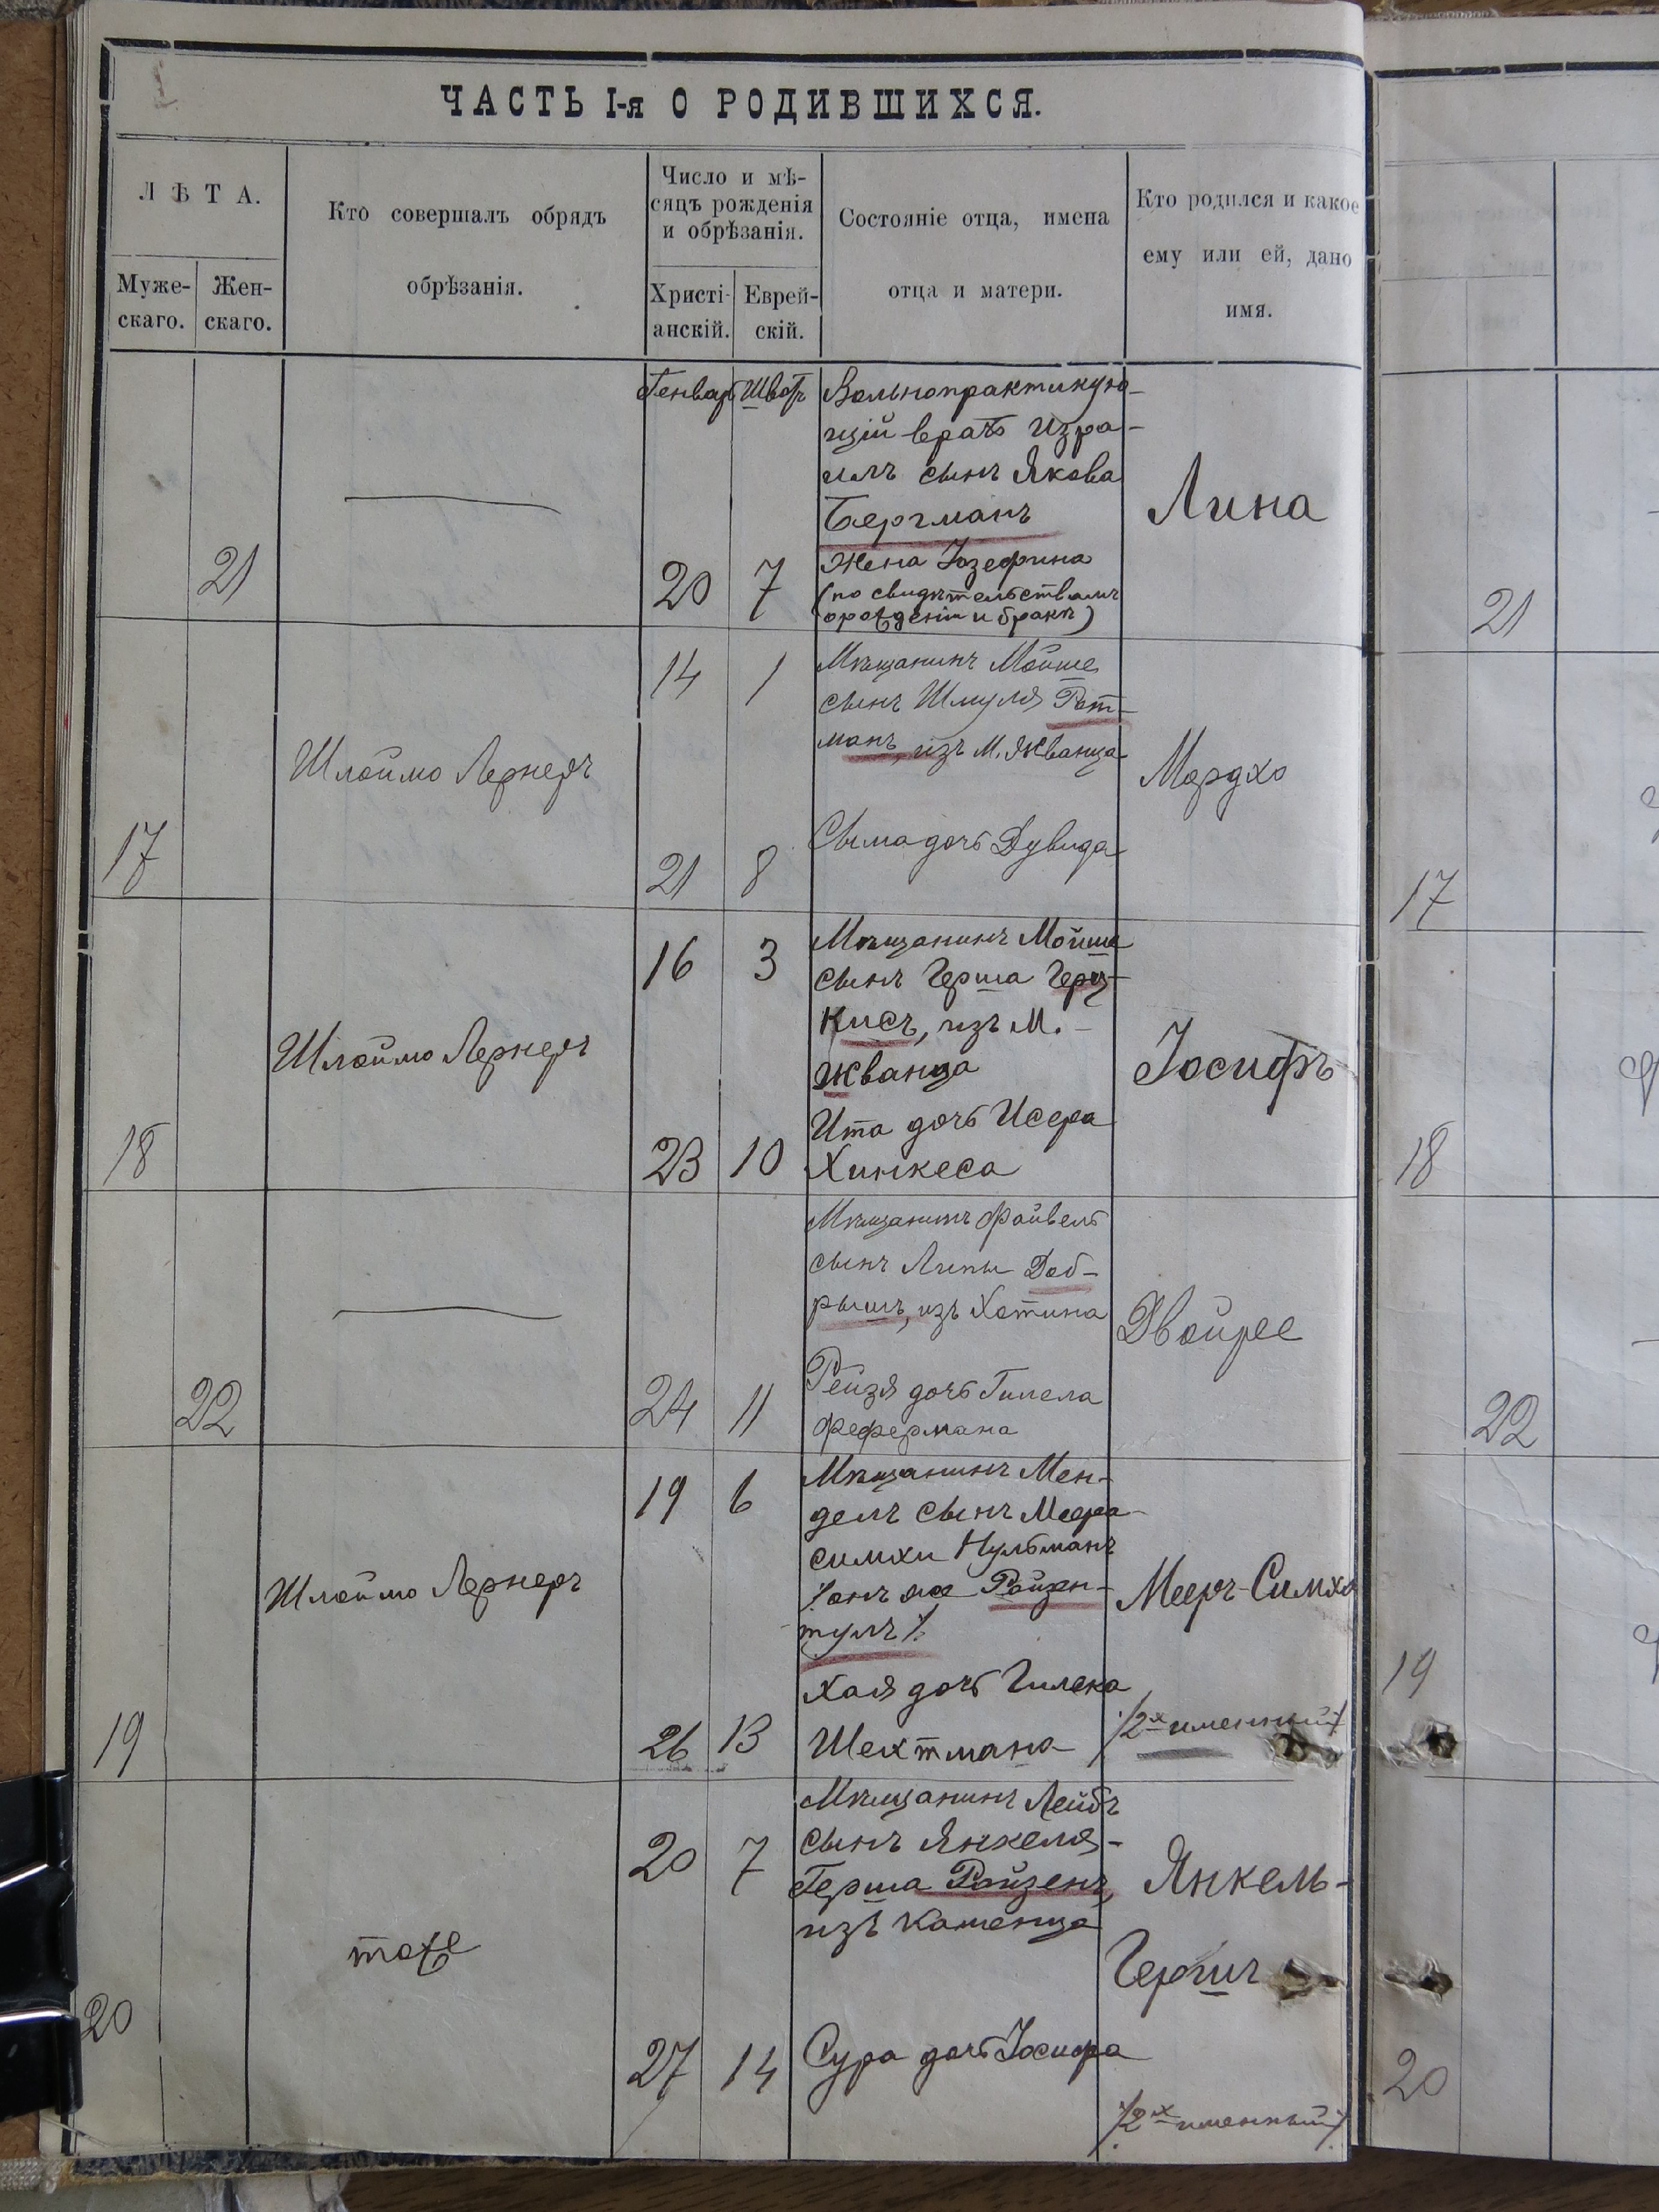 ЧАСТЬ I-я О РОДИВШИХСЯ.
ЛѢТА.
Муже-
скаго.
Жен-
скаго.
Кто совершалъ обрядъ
обрѣзанія.
Число и мѣ-
сяцъ рожденія
и обрѣзанія.
Христі-
анскій.
Еврей-
скій.
Состояніе отца, имена
отца и матери.
Кто родился и какое
ему или ей, дано
имя.
Генварь Шватъ
21
20 7
Вольнопрактикую-
щій врачъ Изра-
иль сынъ Якова
Бергманъ
Жена Іозефина
(по свидѣтельствамъ
о рожденіи и бракѣ)
Лина
17
Шлоймо Лернеръ
14 1
21 8
Мѣщанинъ Мойше
сынъ Шмуля Рот-
манъ, изъ М. Жванца
Сыма дочь Дувида
Мордхо
18
Шлоймо Лернеръ
16 3
23 10
Мѣщанинъ Мойше
сынъ Герша Герц-
кисъ, изъ М.
Жванца
Ита дочь Исера
Хинкеса
Іосифъ
22
24 11
Мѣщанинъ Файвель
сынъ Липы Доб-
рышъ, изъ Хотина
Рейзя дочь Гилела
Фефермана
Двойре
19
Шлоймо Лернеръ
19 6
26 13
Мѣщанинъ Мен-
дель сынъ Меера
Симхи Нульманъ
/онъ же Ройзен-
тулъ/.
Хая дочь Гилека
Шехтмана
Мееръ-Симхо
/2х именный/
20
тоже
20 7
27 14
Мѣщанинъ Лейбъ
сынъ Янкеля-
Герша Ройзенъ,
изъ Каменца
Сура дочь Іосифа
Янкель-
Гершъ
/2х именный/
21
17
18
22
19
20